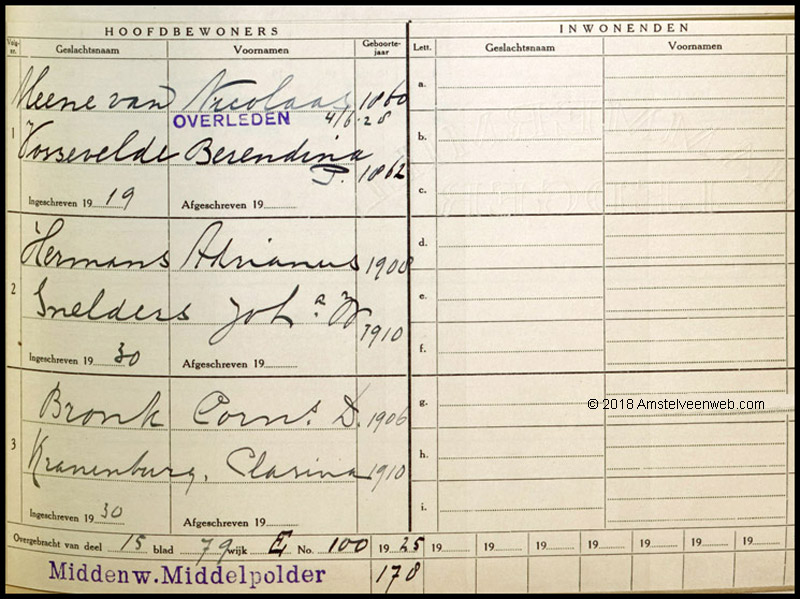 HOOFDBEWONERS
INWONENDEN
Volg-nr. Geslachtsnaam Voornamen Geboorte-jaar Lett. Geslachtsnaam Voornamen
Meene van Nicolaas 1860 a.
OVERLEDEN 4/6-28
1 Vossevelde Berendina b.
P. 1862
Ingeschreven 1919 Afgeschreven 19 c.
Hermans Adrianus 1908 d.
2 Snelders Joh.a W 1910 e.
Ingeschreven 1930 Afgeschreven 19 f.
Bronk Corns. D. 1906 g.
© 2018 Amstelveenweb.com
3 Kranenburg, Clasina 1910 h.
Ingeschreven 1930 Afgeschreven 19 i.
Overgebracht van deel 15 blad 79 wijk E No. 100 1925 19 19 19 19 19 19 19
Middenw. Middelpolder 178